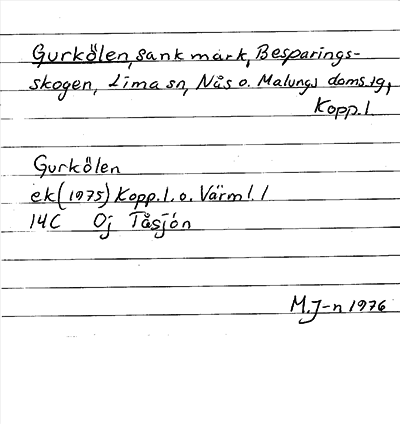 Gurkölen, sank mark, Besparings-
skogen, Lima sn, Nås o. Malungs doms.tg,
Kopp.l.
Gurkölen
ek (1975) Kopp.l. o. Värml. l
14C Oj Tåsjön
M.J-n 1976